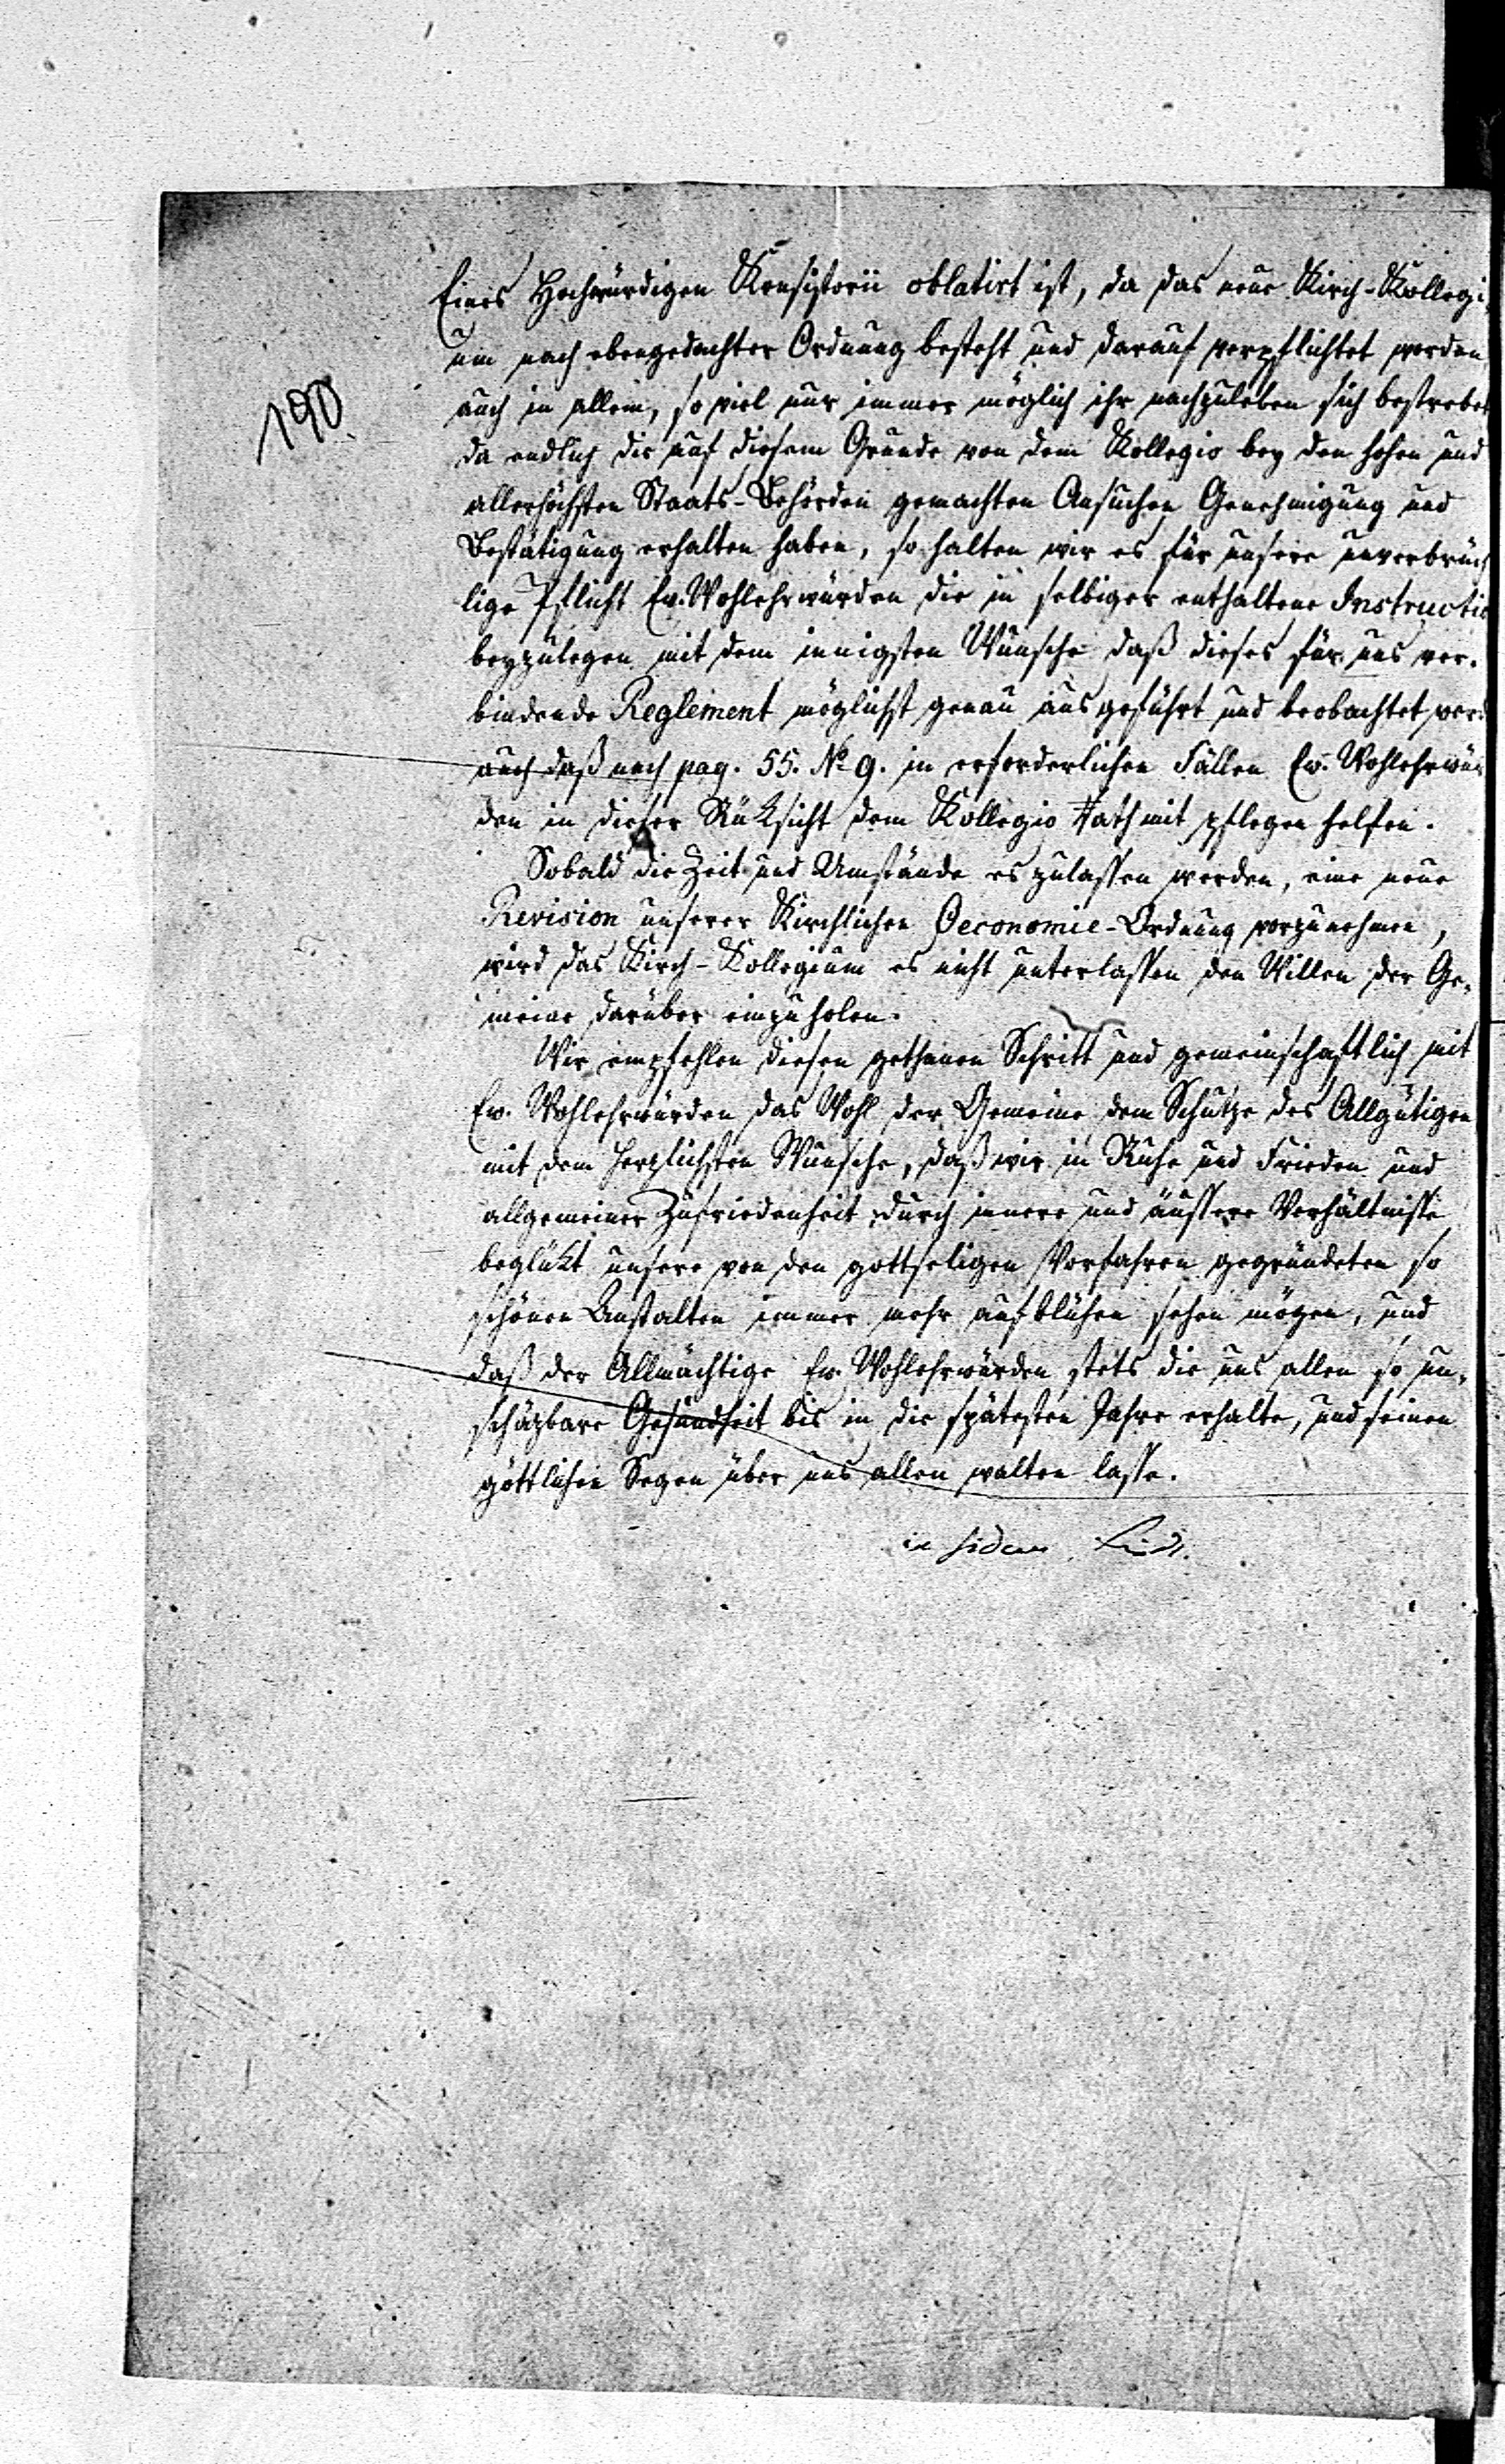 190.
Eines Hochwürdigen Konsistorii oblatirt ist, da das neue Kirch-Kollegi
um nach ebengedachter Ordnung besteht und darauf verpflichtet worden
auch in allem, so viel nur immer möglich ihr nachzuleben sich bestrebet
da endlich die auf diesem Grunde von dem Kollegio bey den hohen und
allerhöchsten Staats-Behörden gemachten Ansuchen Genehmigung und
Bestätigung erhalten haben, so halten wir es für unsere unverbrüch
lige Pflicht Ew. Wohlehrwürden die in selbiger enthaltene Instructio
beyzulegen mit dem innigsten Wunsche daß dieses für uns ver-
bindende Reglement möglichst genau ausgeführt und beobachtet werd
auch daß nach pag. 55. No 9. in erforderlichen Fällen Ew. Wohlehrwür
den in dieser Rüksicht dem Kollegio Rath mit pflegen helfen.
Sobald die Zeit und Umstände es zulassen werden, eine neue
Revision unserer Kirchlichen Oeconomie-Ordnung vorzunehmen,
wird das Kirch-Kollegium es nicht unterlassen den Willen der Ge-
meine darüber einzuholen.
Wir empfehlen diesen gethanen Schritt und gemeinschaftlich mit
Ew. Wohlehrwürden das Wohl der Gemeine dem Schutze des Allgütigen
mit dem herzlichsten Wunsche, daß wir in Ruhe und Frieden und
allgemeiner Zufriedenheit durch innere und äussere Verhältnisse
beglükt unsere von den gottseligen Vorfahren gegründeten so
schönen Anstalten immer mehr aufblühen sehen mögen, und
daß der Allmächtige Ew. Wohlehrwürden stets die uns allen so un-
schäzbare Gesundheit bis in die spätesten Jahre erhalte, und seinen
göttlichen Segen über uns allen walten lasse.
in fidem